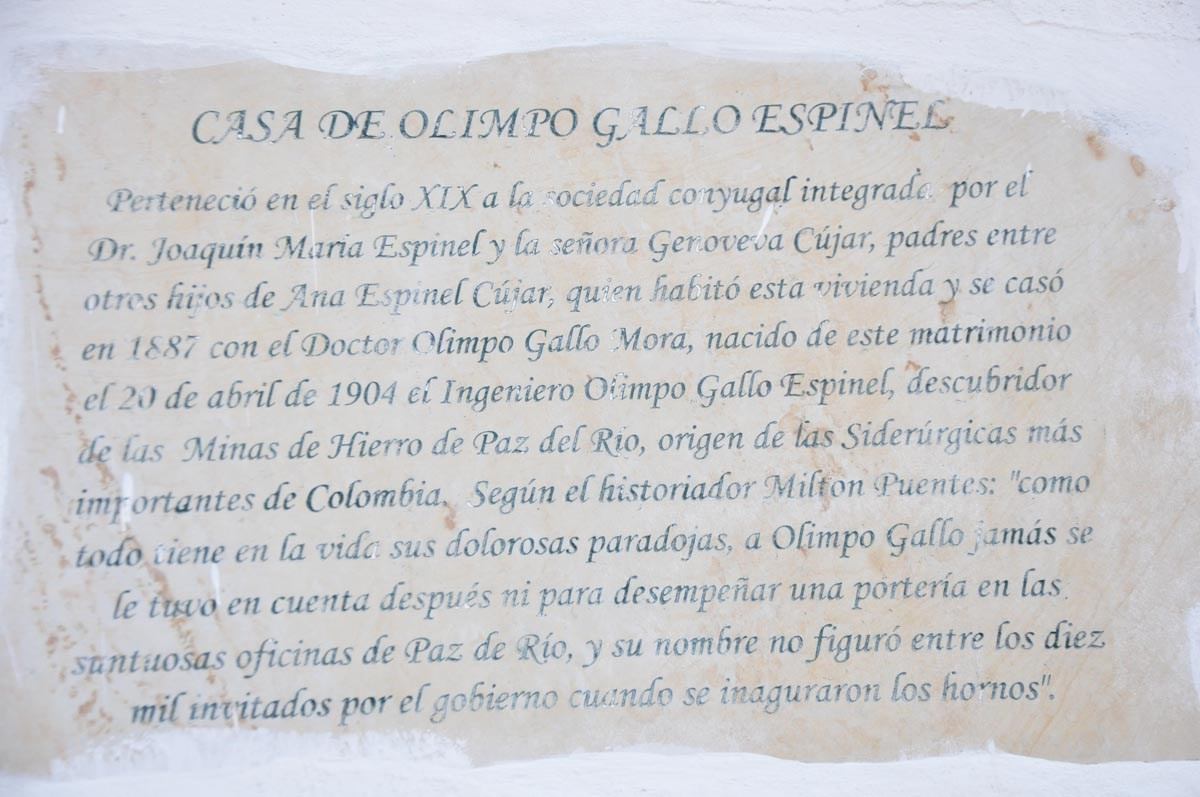 CASA DE OLIMPO GALLO ESPINEL
Perteneció en el siglo XIX a la sociedad conyugal integrada por el
Dr. Joaquín Maria Espinel y la señora Genoveva Cújar, padres entre
otros hijos de Ana Espinel Cújar, quien habitó esta vivienda y se casó
en 1887 con el Doctor Olimpo Gallo Mora, nacido de este matrimonio
el 20 de abril de 1904 el Ingeniero Olimpo Gallo Espinel, descubridor
de las Minas de Hierro de Paz del Río, origen de las Siderúrgicas más
importantes de Colombia. Según el historiador Milton Puentes: "como
todo tiene en la vida sus dolorosas paradojas, a Olimpo Gallo jamás se
le tuvo en cuenta después ni para desempeñar una portería en las
suntuosas oficinas de Paz de Río, y su nombre no figuró entre los diez
mil invitados por el gobierno cuando se inaguraron los hornos".